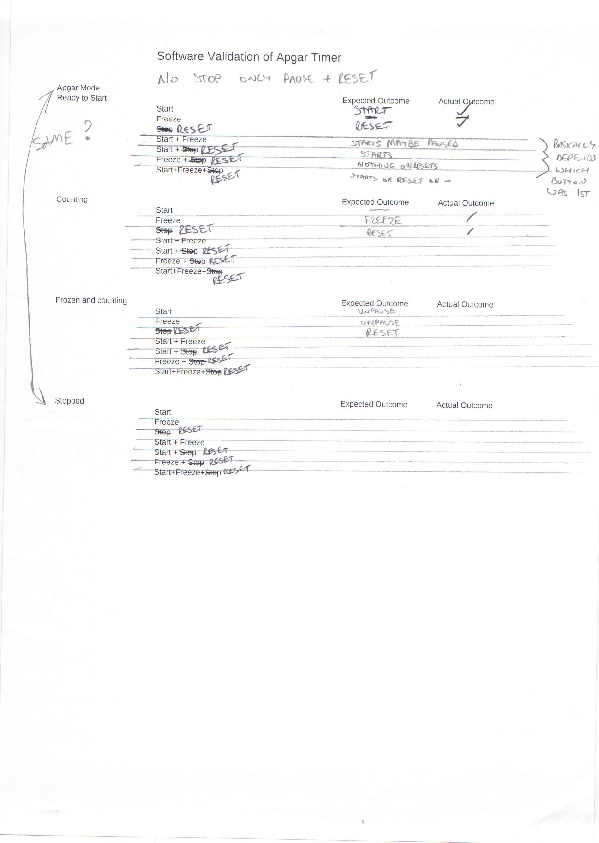 Software Validation of Apgar Timer
NO STOP ONLY PAUSE + RESET
Apgar Mode
Ready to Start
SAME?
Expected Outcome Actual Outcome
Start START ✓
Freeze — ✓
Stop RESET RESET ✓
Start + Freeze STARTS MAYBE PAUSED
Start + Stop RESET STARTS
Freeze + Stop RESET NOTHING OR RESETS
Start+Freeze+Stop RESET STARTS OR RESET OR —
BASICALLY
DEPENDS
WHICH
BUTTON
WAS 1ST
Counting
Expected Outcome Actual Outcome
Start —
Freeze FREEZE ✓
Stop RESET RESET ✓
Start + Freeze
Start + Stop RESET
Freeze + Stop RESET
Start+Freeze+Stop RESET
Frozen and counting
Expected Outcome Actual Outcome
Start UNPAUSE
Freeze UNPAUSE
Stop RESET RESET
Start + Freeze
Start + Stop RESET
Freeze + Stop RESET
Start+Freeze+Stop RESET
Stopped
Expected Outcome Actual Outcome
Start
Freeze
Stop RESET
Start + Freeze
Start + Stop RESET
Freeze + Stop RESET
Start+Freeze+Stop RESET